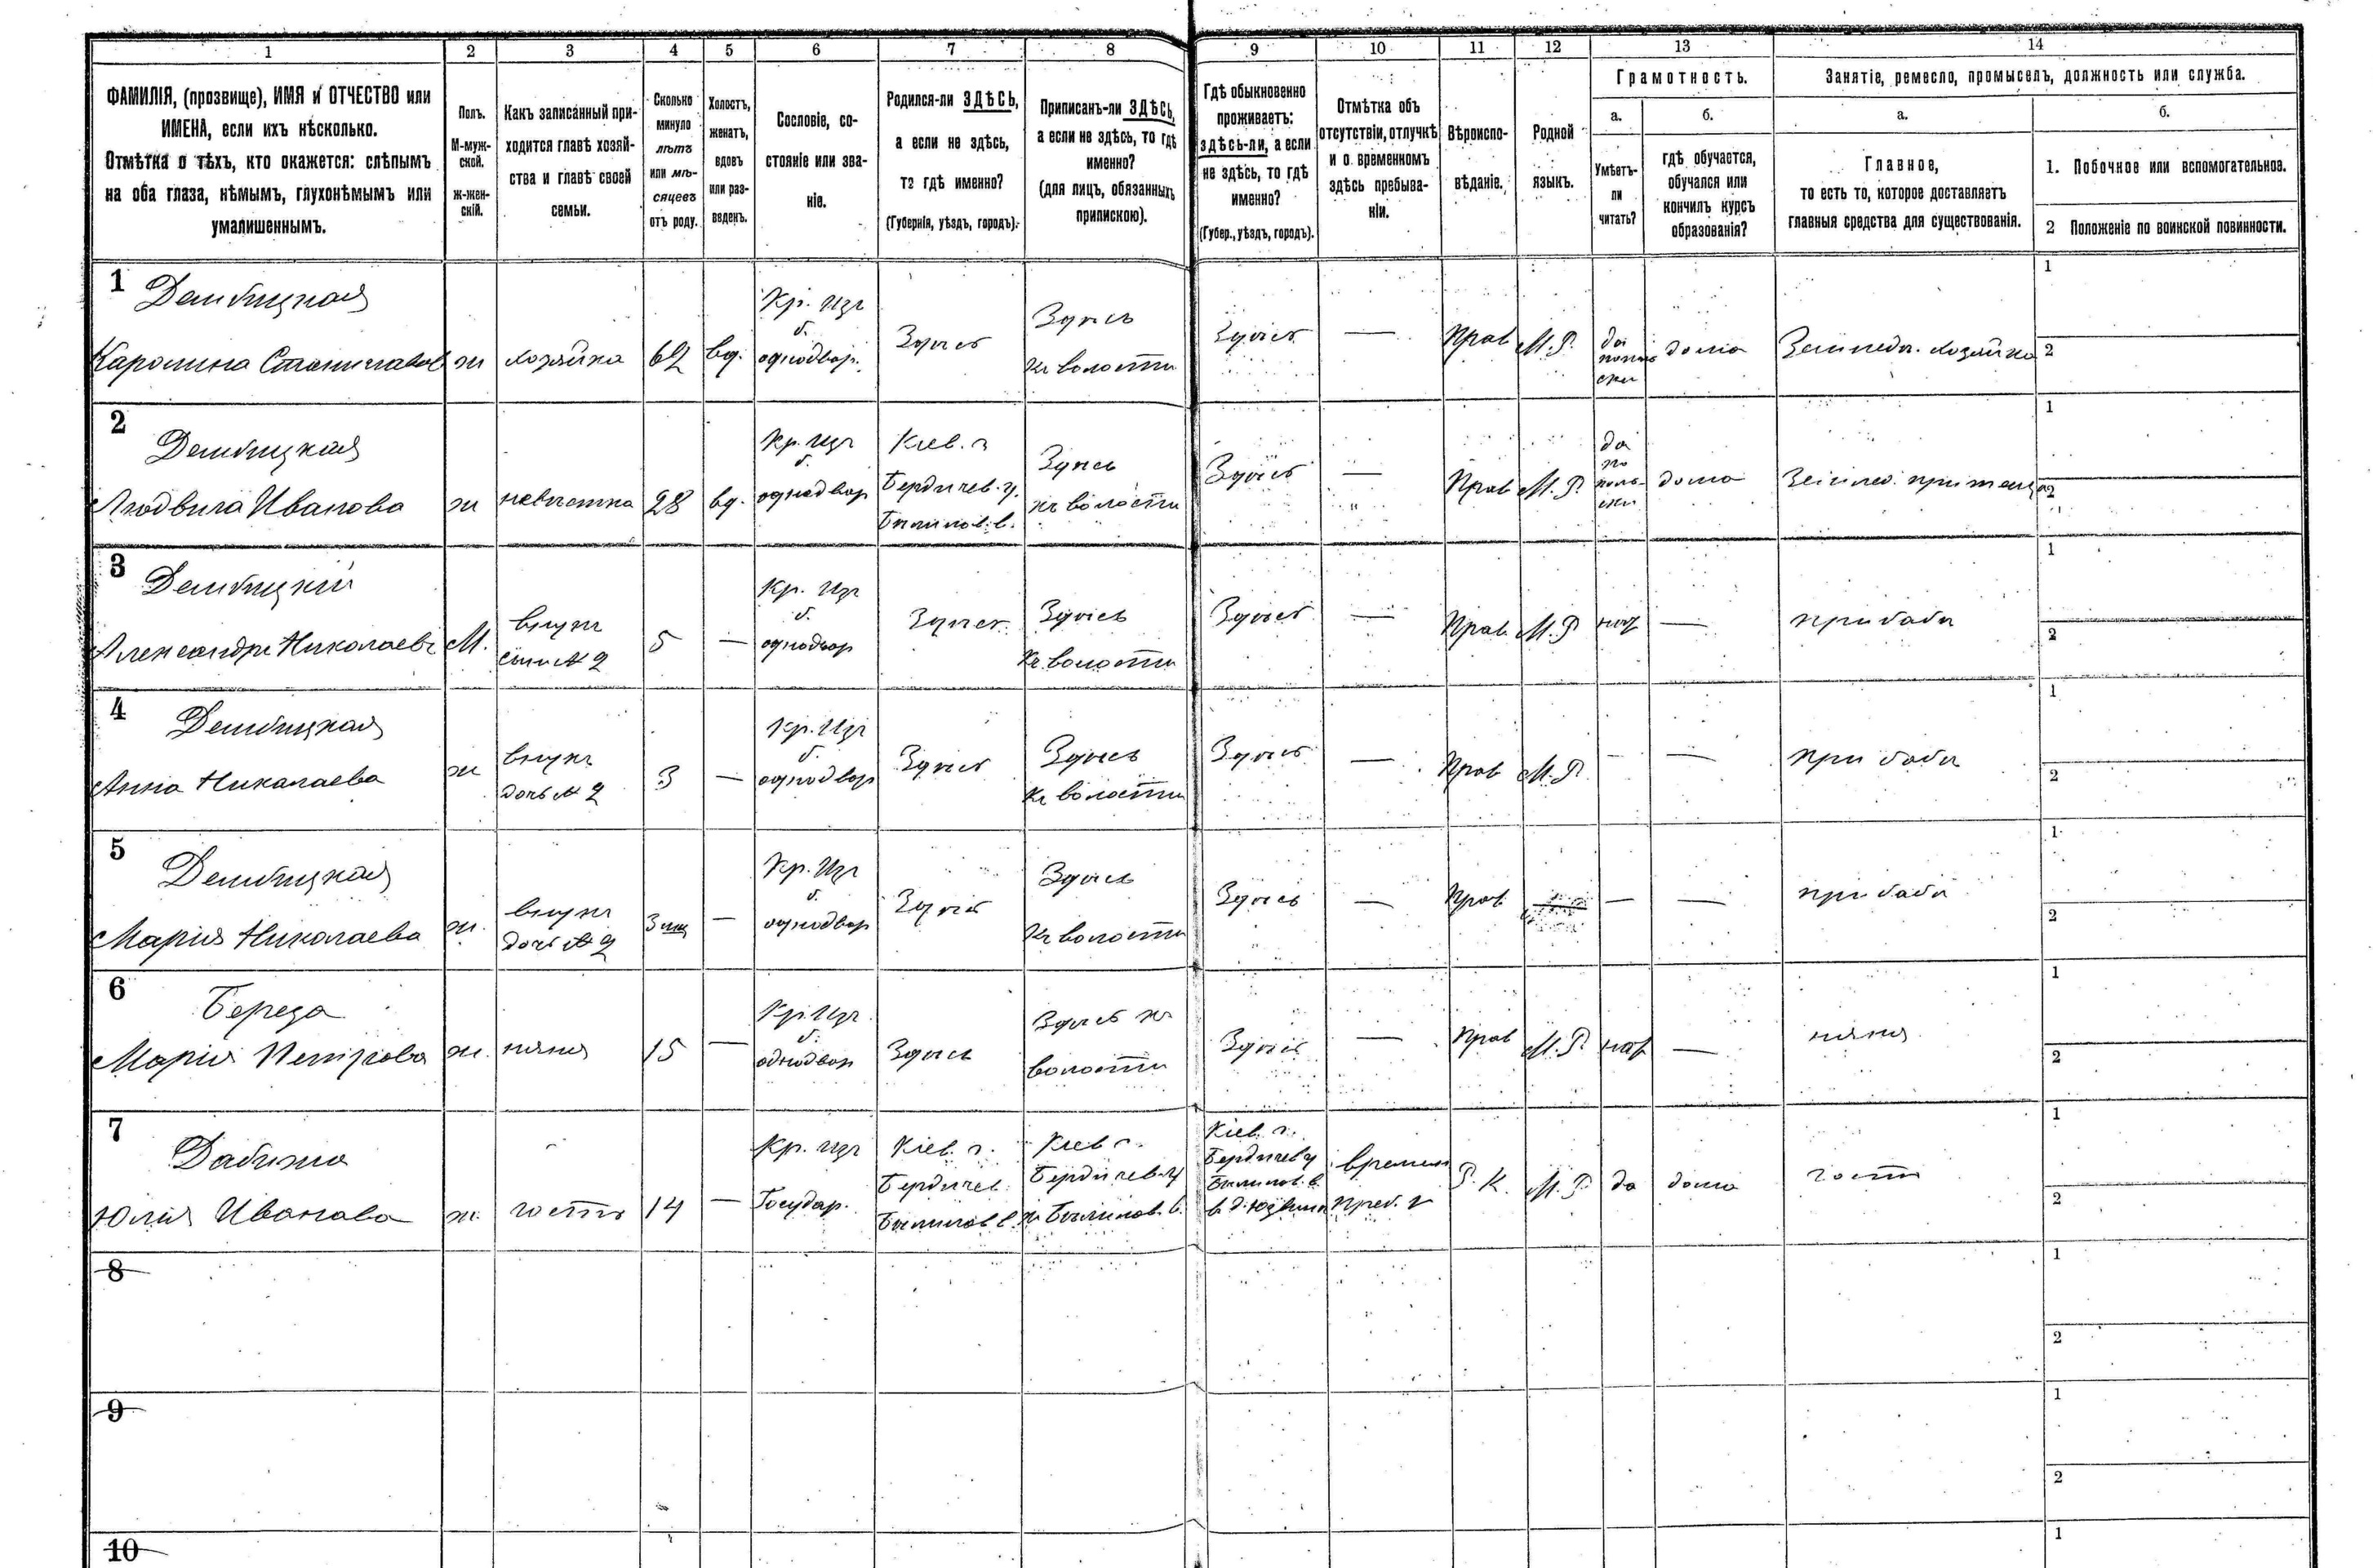 1 2 3 4 5 6 7 8 9 10 11 12 13 14
ФАМИЛІЯ, (прозвище), ИМЯ и ОТЧЕСТВО или
ИМЕНА, если ихъ нѣсколько.
Отмѣтка о тѣхъ, кто окажется: слѣпымъ
на оба глаза, нѣмымъ, глухонѣмымъ или
умалишеннымъ.
Полъ.
М-муж-
ской.
ж-жен-
скій.
Какъ записанный при-
ходится главѣ хозяй-
ства и главѣ своей
семьи.
Сколько
минуло
лѣтъ
или мѣ-
сяцевъ
отъ роду.
Холостъ,
женатъ,
вдовъ
или раз-
веденъ.
Сословіе, со-
стояніе или зва-
ніе.
Родился-ли ЗДѢСЬ,
а если не здѣсь,
то гдѣ именно?
(Губернія, уѣздъ, городъ).
Приписанъ-ли ЗДѢСЬ,
а если не здѣсь, то гдѣ
именно?
(для лицъ, обязанныхъ
припискою).
Гдѣ обыкновенно
проживаетъ:
здѣсь-ли, а если
не здѣсь, то гдѣ
именно?
(Губер., уѣздъ, городъ).
Отмѣтка объ
отсутствіи, отлучкѣ
и о временномъ
здѣсь пребыва-
ніи.
Вѣроиспо-
вѣданіе.
Родной
языкъ.
Грамотность.
а.
Умѣетъ-
ли
читать?
б.
гдѣ обучается,
обучался или
кончилъ курсъ
образованія?
Занятіе, ремесло, промыселъ, должность или служба.
а.
Главное,
то есть то, которое доставляетъ
главныя средства для существованія.
б.
1. Побочное или вспомогательное.
2 Положеніе по воинской повинности.
1
Дембицкая
Каролина Станиславов
ж
хозяйка
62
вд.
Кр. изъ
б.
однодвор.
Здѣсь
Здѣсь
къ волости
Здѣсь
—
Прав
М.Р.
да
дома
Земледѣл. хозяйка
1
2
2
Дембицкая
Людвига Иванова
ж
невѣстка
28
вд.
Кр. изъ
б.
однодвор
Кіев. г
Бердичев. у.
Здѣсь
къ волости
Здѣсь
—
Прав
М.Р.
да
по
поль-
ски
дома
1
2
3
Дембицкій
Александръ Николаевъ
М.
внукъ
сынъ № 2
5
—
Кр. изъ
б.
однодвор
Здѣсь
Здѣсь
къ волости
Здѣсь
—
Прав.
М.Р
нѣт
—
при бабѣ
1
2
4
Дембицкая
Анна Николаева
ж
внукъ
дочь № 2
3
—
Кр. изъ
б.
однодвор
Здѣсь
Здѣсь
къ волости
Здѣсь
—
Прав
М.Р.
—
—
при бабѣ
1
2
5
Дембицкая
Марія Николаева
ж.
внукъ
дочь № 2
3 мц
—
Кр. изъ
б.
однодвор
Здѣсь
Здѣсь
къ волости
Здѣсь
—
Прав
—
—
при бабѣ
1
2
6
Береза
Марія Петрова
ж.
няня
15
—
Кр. изъ
б.
однодвор
Здѣсь
Здѣсь къ
волости
Здѣсь
—
Прав
М.Р.
нѣт
—
няня
1
2
7
Дабижа
Юлія Иванова
ж.
гостья
14
—
Кр. изъ
Государ.
Кіев. г.
Бердичев.
Кіев г.
Бердичев у
Кіев. г.
Бердичев у
времен
преб.
Р. К.
М.Р.
да
дома
1
2
8
1
2
9
1
2
10
1